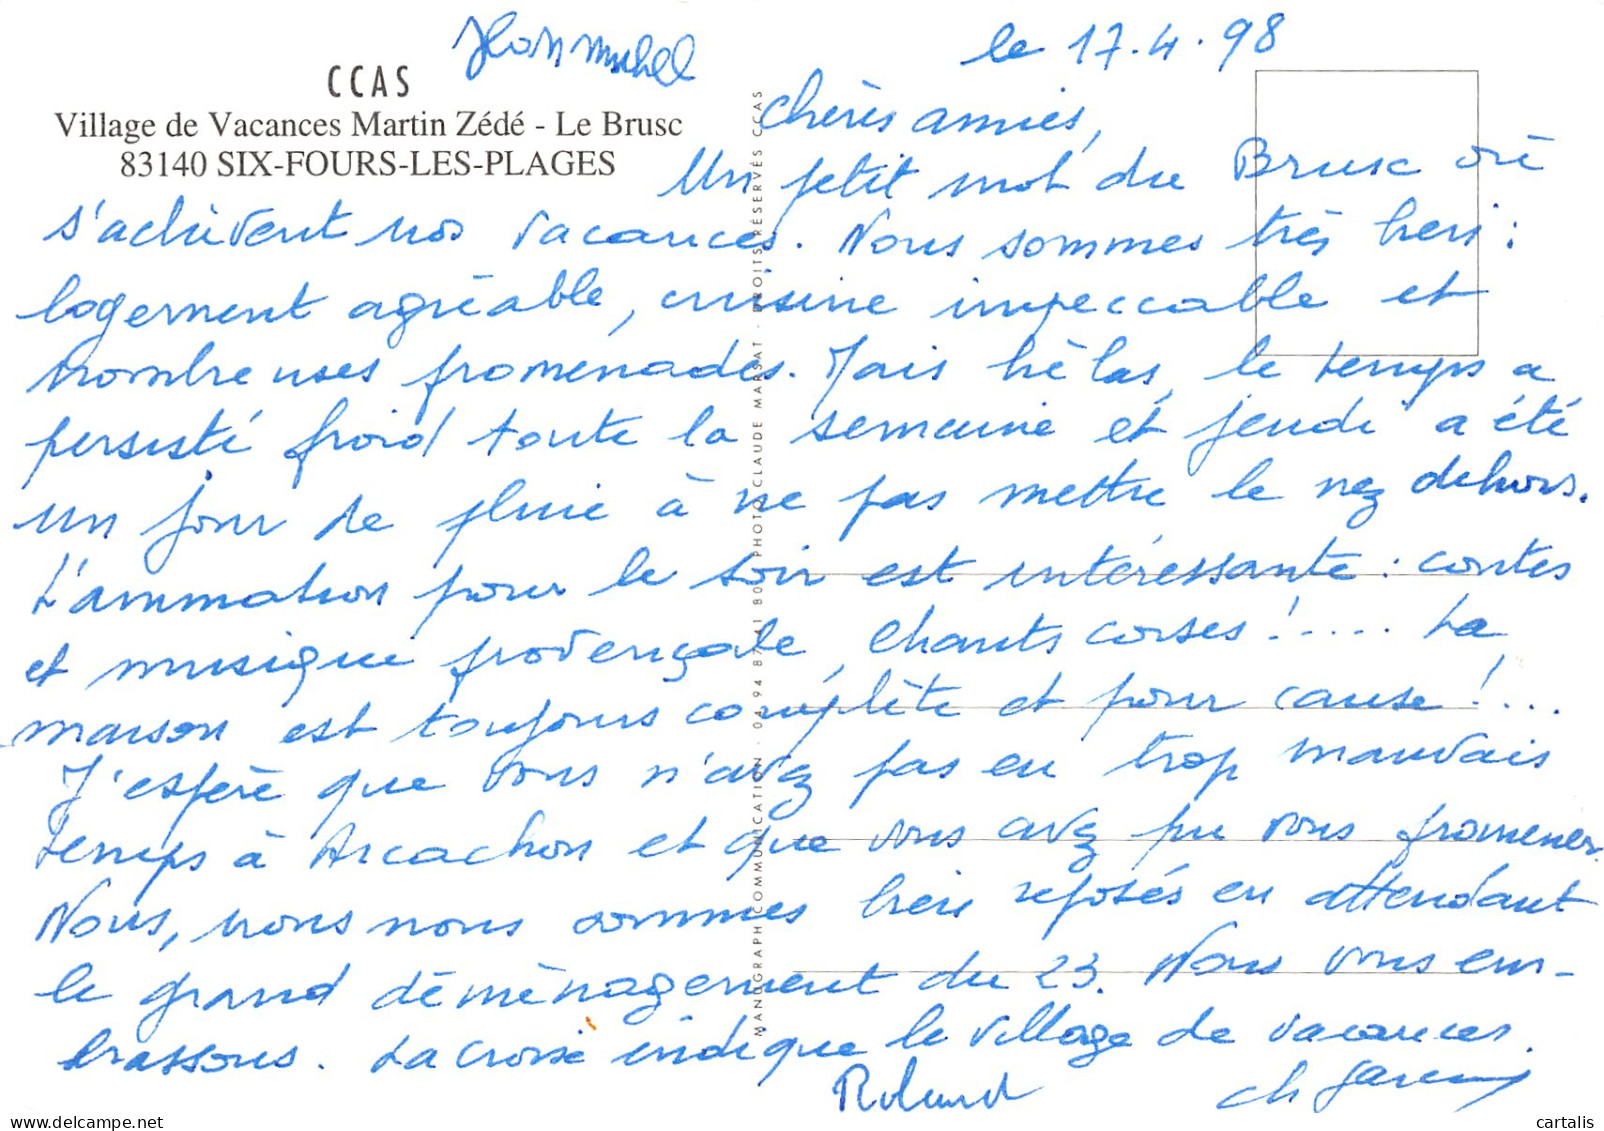 Jean Michel
le 17.4.98
CCAS
Village de Vacances Martin Zédé - Le Brusc
83140 SIX-FOURS-LES-PLAGES
Chères amies,
Un petit mot du Brusc où
s'achèvent nos vacances. Nous sommes très bien :
logement agréable, cuisine impeccable et
nombreuses promenades. Mais hélas, le temps a
persisté froid toute la semaine et jeudi a été
un jour de pluie à ne pas mettre le nez dehors.
L'animation pour le soir est intéressante : contes
et musique provençale, chants corses !.... La
maison est toujours complète et pour cause !...
J'espère que vous n'avez pas eu trop mauvais
temps à Arcachon et que vous avez pu vous promener.
Nous, nous nous sommes bien reposés en attendant
le grand déménagement du 23. Nous vous em-
brassons. La croix indique le village de vacances.
Roland
Ch
MANOGRAPH COMMUNICATION - 04 94 80 PHOTO CLAUDE MARSAT - DROITS RÉSERVÉS CCAS
cartalis.com